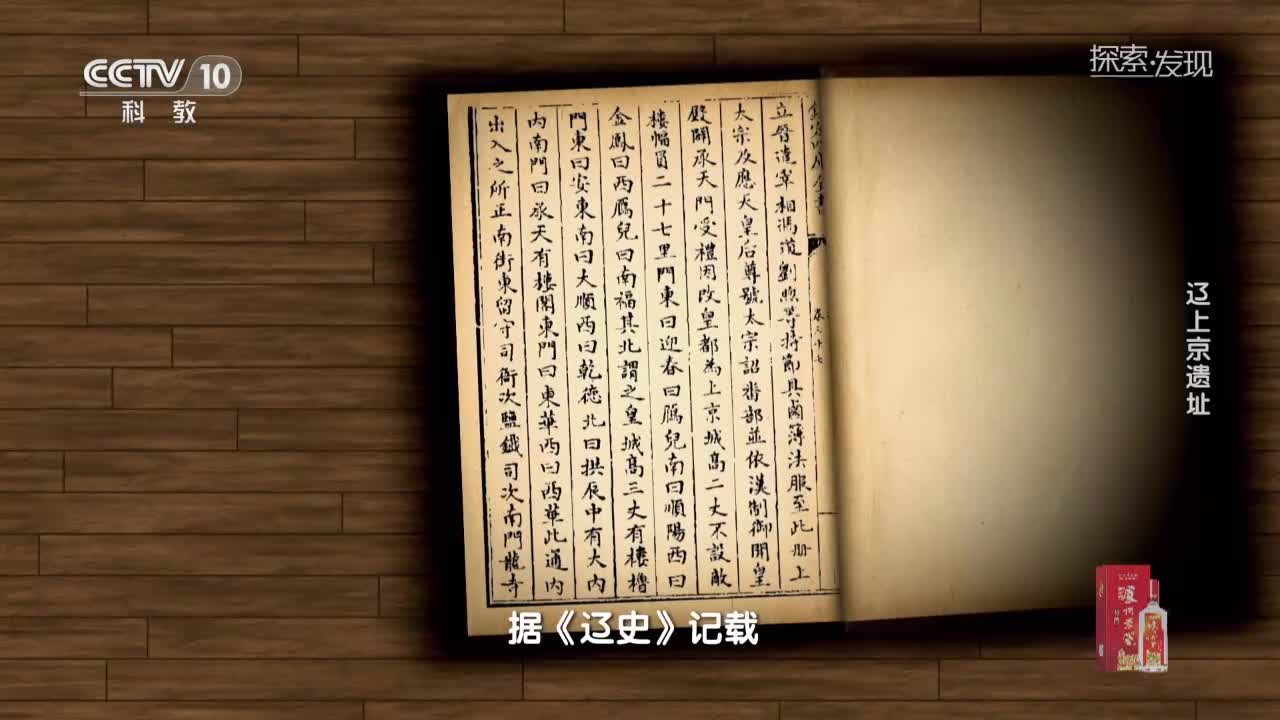 CCTV 10
科教
探索·发现
辽上京遗址
卷三十七
立晉遣宰相馮道劉煦等持節具鹵簿法服至此册上
太宗及應天皇后尊號太宗詔番部並依漢制御開皇
殿闢承天門受禮因改皇都為上京城高二丈不設敵
樓幅員二十七里門東曰迎春曰鴈兒南曰順陽西曰
金鳳曰西鴈兒曰南福其北謂之皇城高三丈有樓櫓
門東曰安東南曰大順西曰乾德北曰拱辰中有大內
內南門曰承天有樓閣東門曰東華西曰西華此通內
出入之所正南街東留守司衙次鹽鐵司次南門龍寺
据《辽史》记载